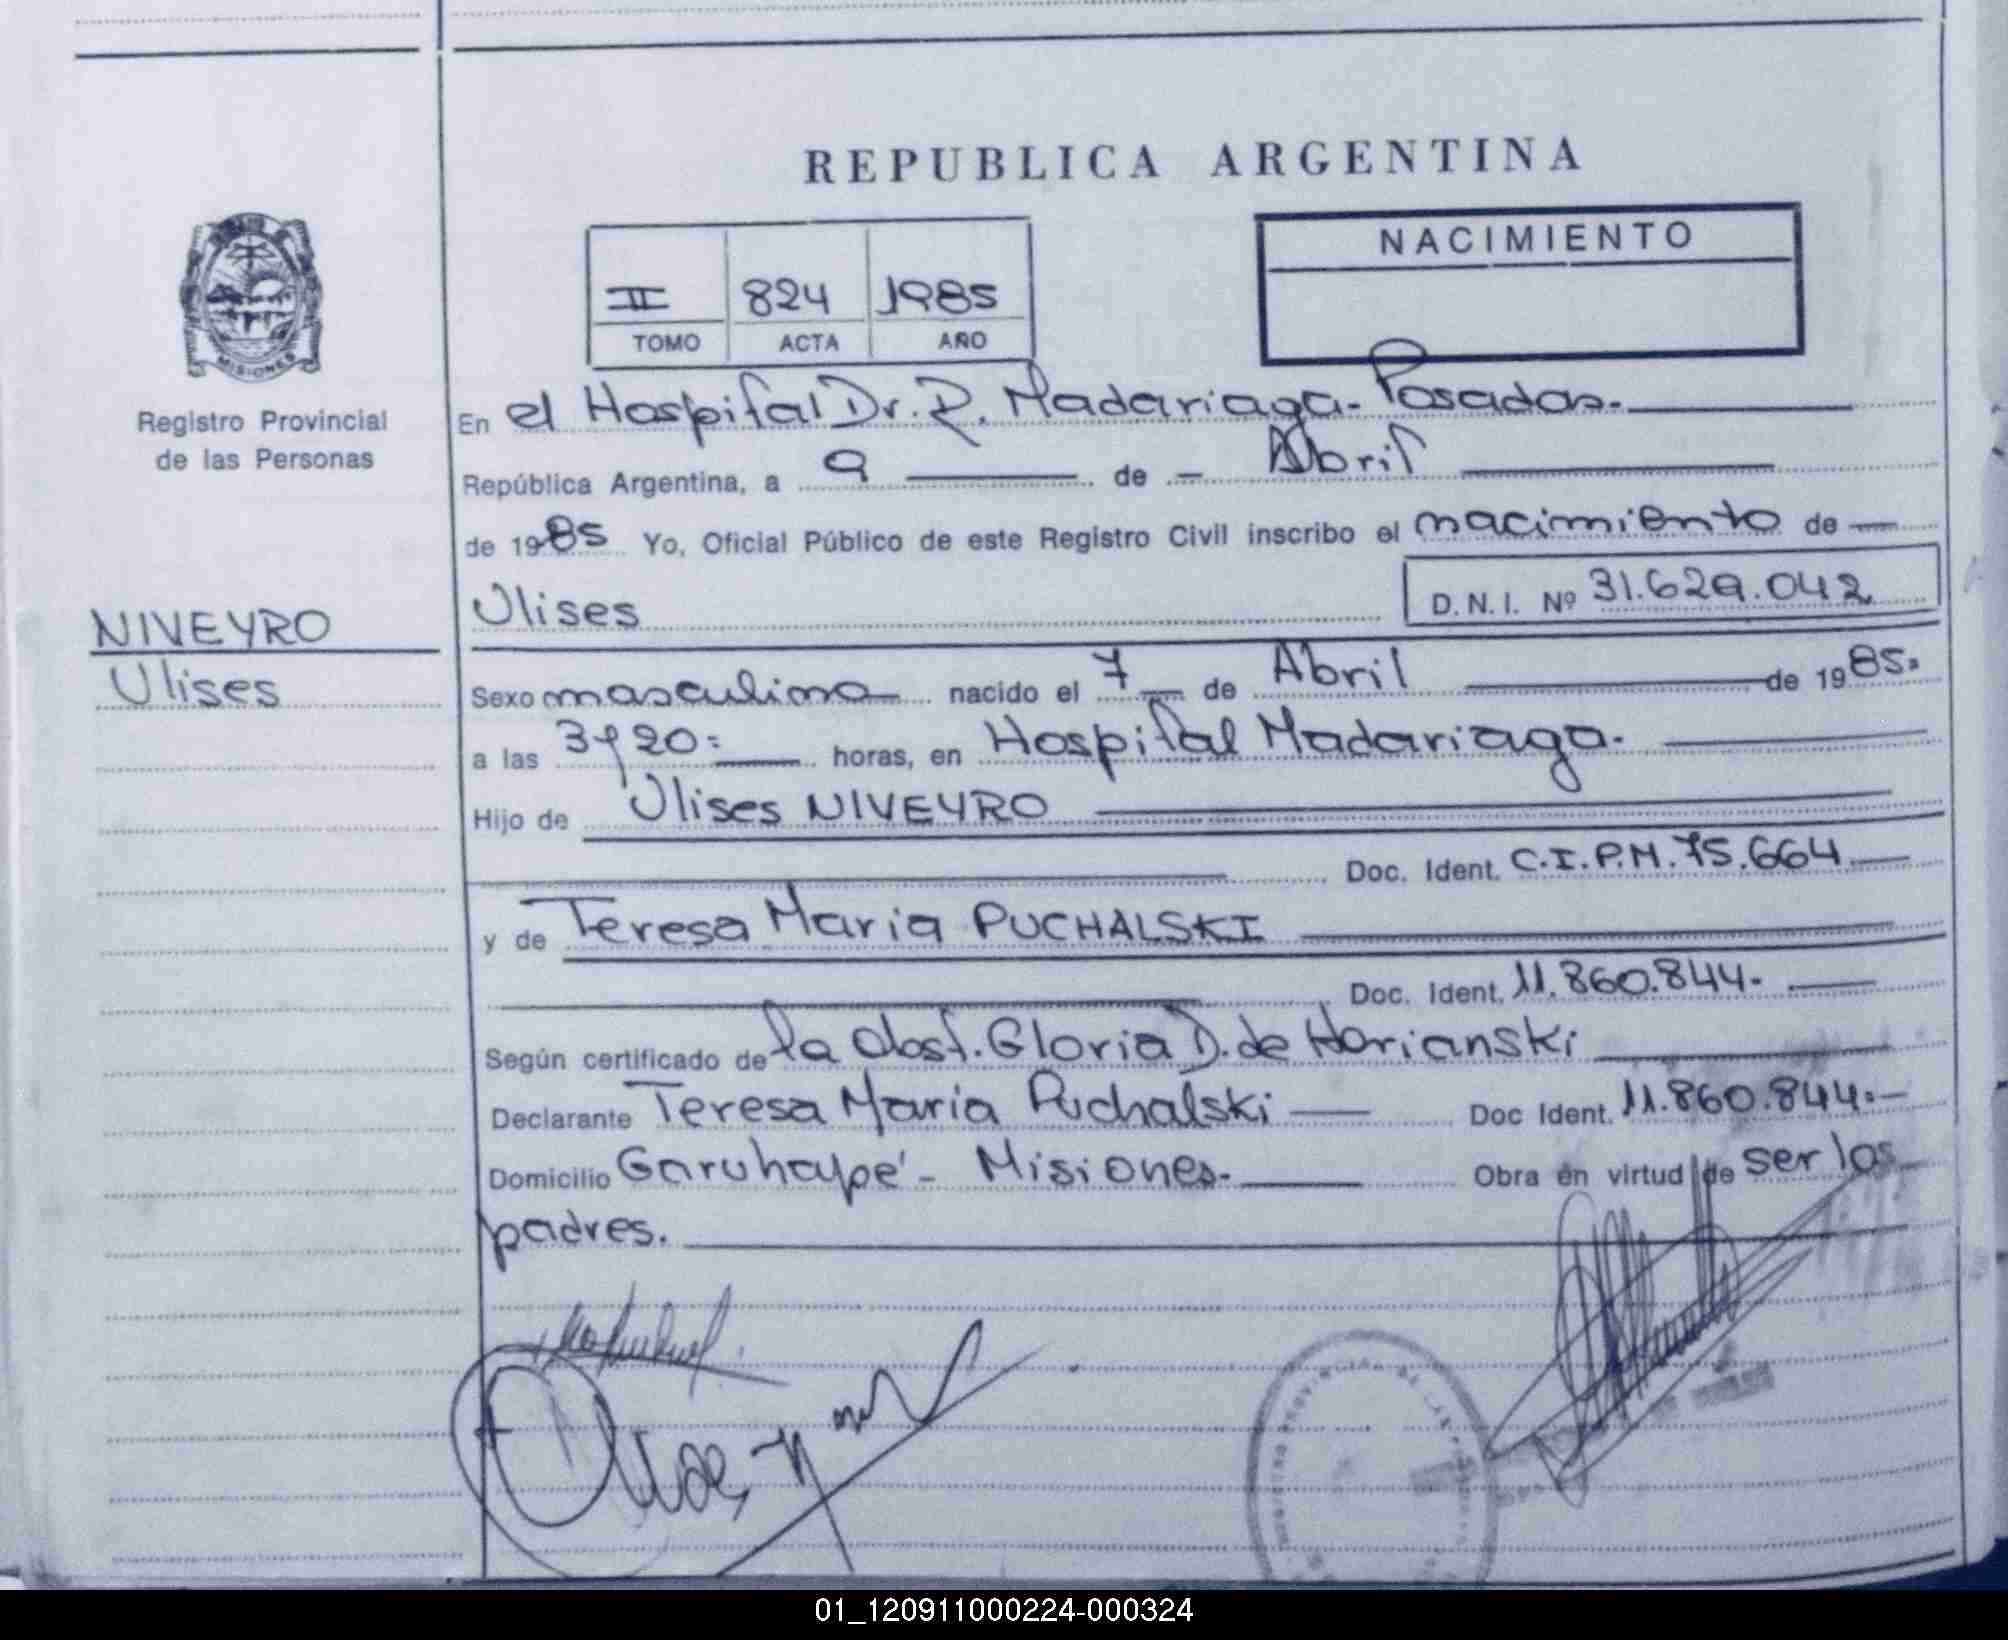 REPUBLICA ARGENTINA
NACIMIENTO
II 824 1985
TOMO ACTA AÑO
MISIONES
Registro Provincial
de las Personas
En el Hospital Dr. R. Madariaga - Posadas.
República Argentina, a 9 de Abril
de 1985 Yo, Oficial Público de este Registro Civil inscribo el nacimiento de
NIVEYRO
Ulises
Ulises D.N.I. Nº 31.629.042
Sexo masculino nacido el 7 de Abril de 1985.
a las 3 y 20: horas, en Hospital Madariaga.
Hijo de Ulises NIVEYRO
Doc. Ident. C.I.P.M. 75.664
y de Teresa Maria PUCHALSKI
Doc. Ident. 11.860.844.
Según certificado de la Obst. Gloria D. de Horianski
Declarante Teresa Maria Puchalski Doc Ident. 11.860.844.-
Domicilio Garuhapé - Misiones. Obra en virtud de ser los
padres.
01_120911000224-000324